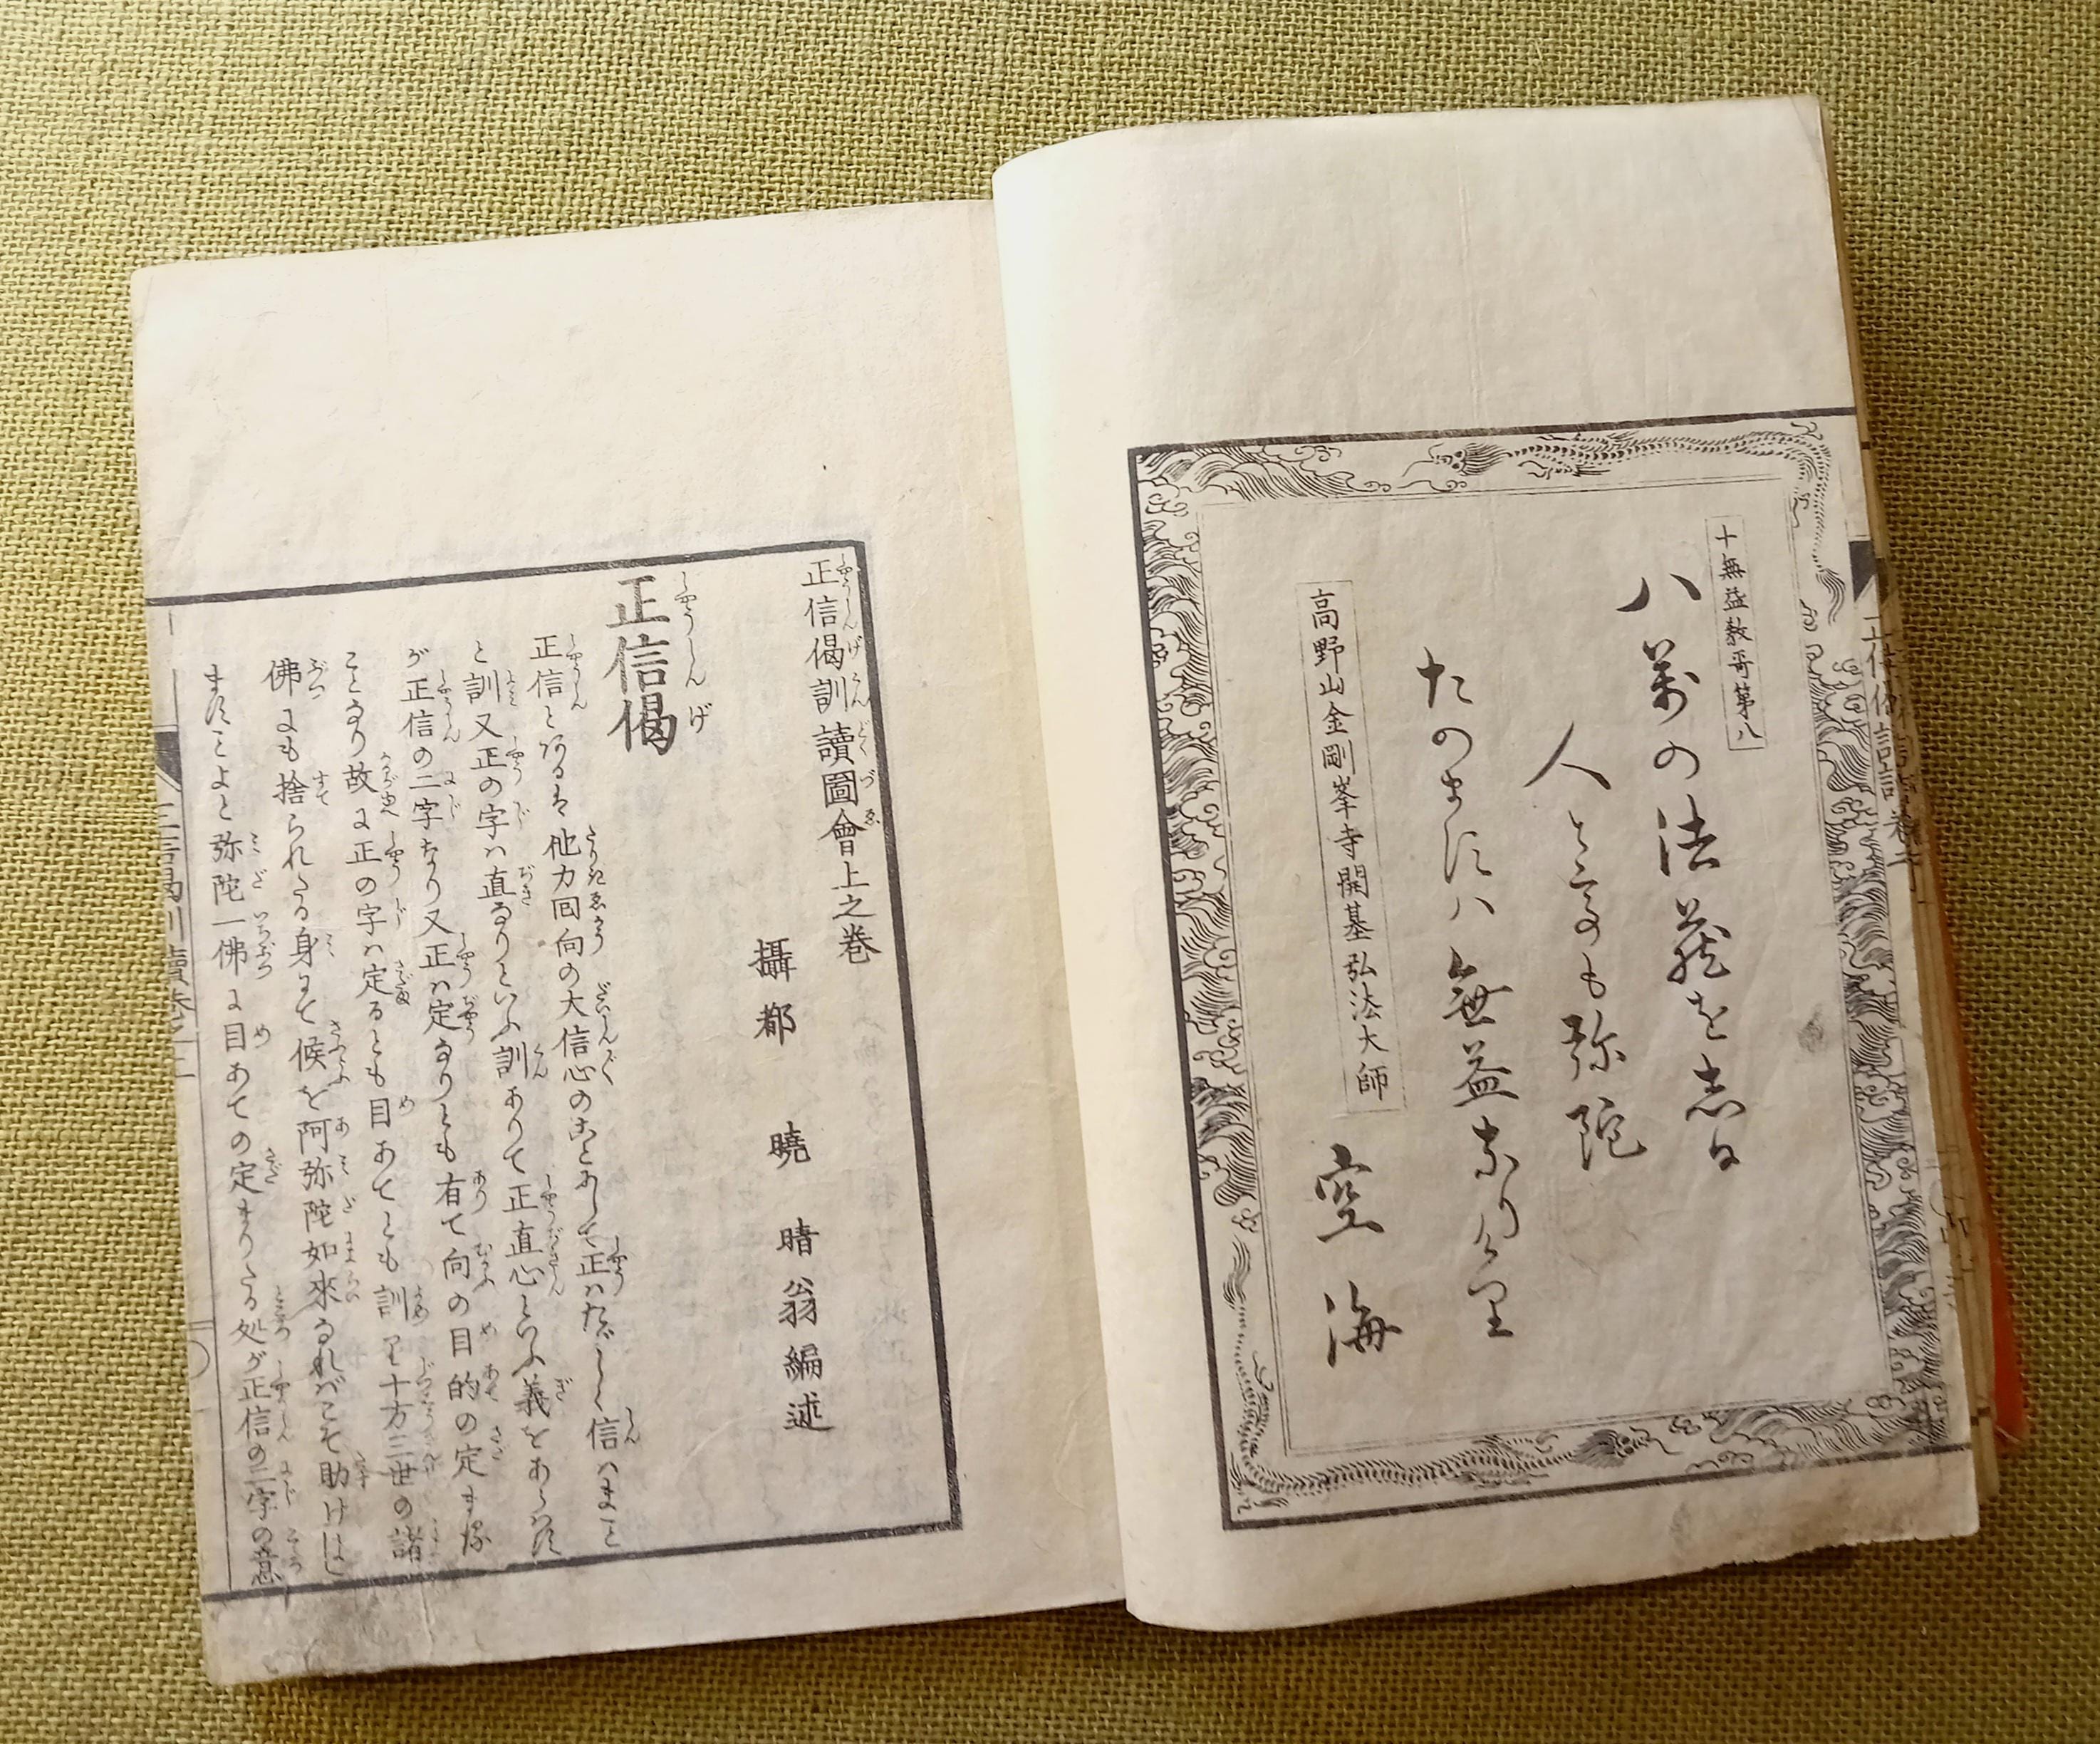 十無益教哥第八
八萬の法蔵を志る
人とても弥陀
たのまずハ無益なりけ里
高野山金剛峯寺開基弘法大師
空海
正信偈訓讀圖會上之巻
攝都 曉晴翁編述
正信偈
正信とハ他力回向の大信心のことにして正ハたゞしく信ハまこと
と訓又正の字ハ直なりといふ訓ありて正直心といふ義をあらハす
が正信の二字なり又正ハ定なりとも有て向の目的の定まる
ことなり故に正の字ハ定るとも目あてとも訓り十方三世の諸
佛にも捨られたる身にて候を阿弥陀如來なればこそ助けはし
ますことよと弥陀一佛に目あての定まりたる処が正信の二字の意